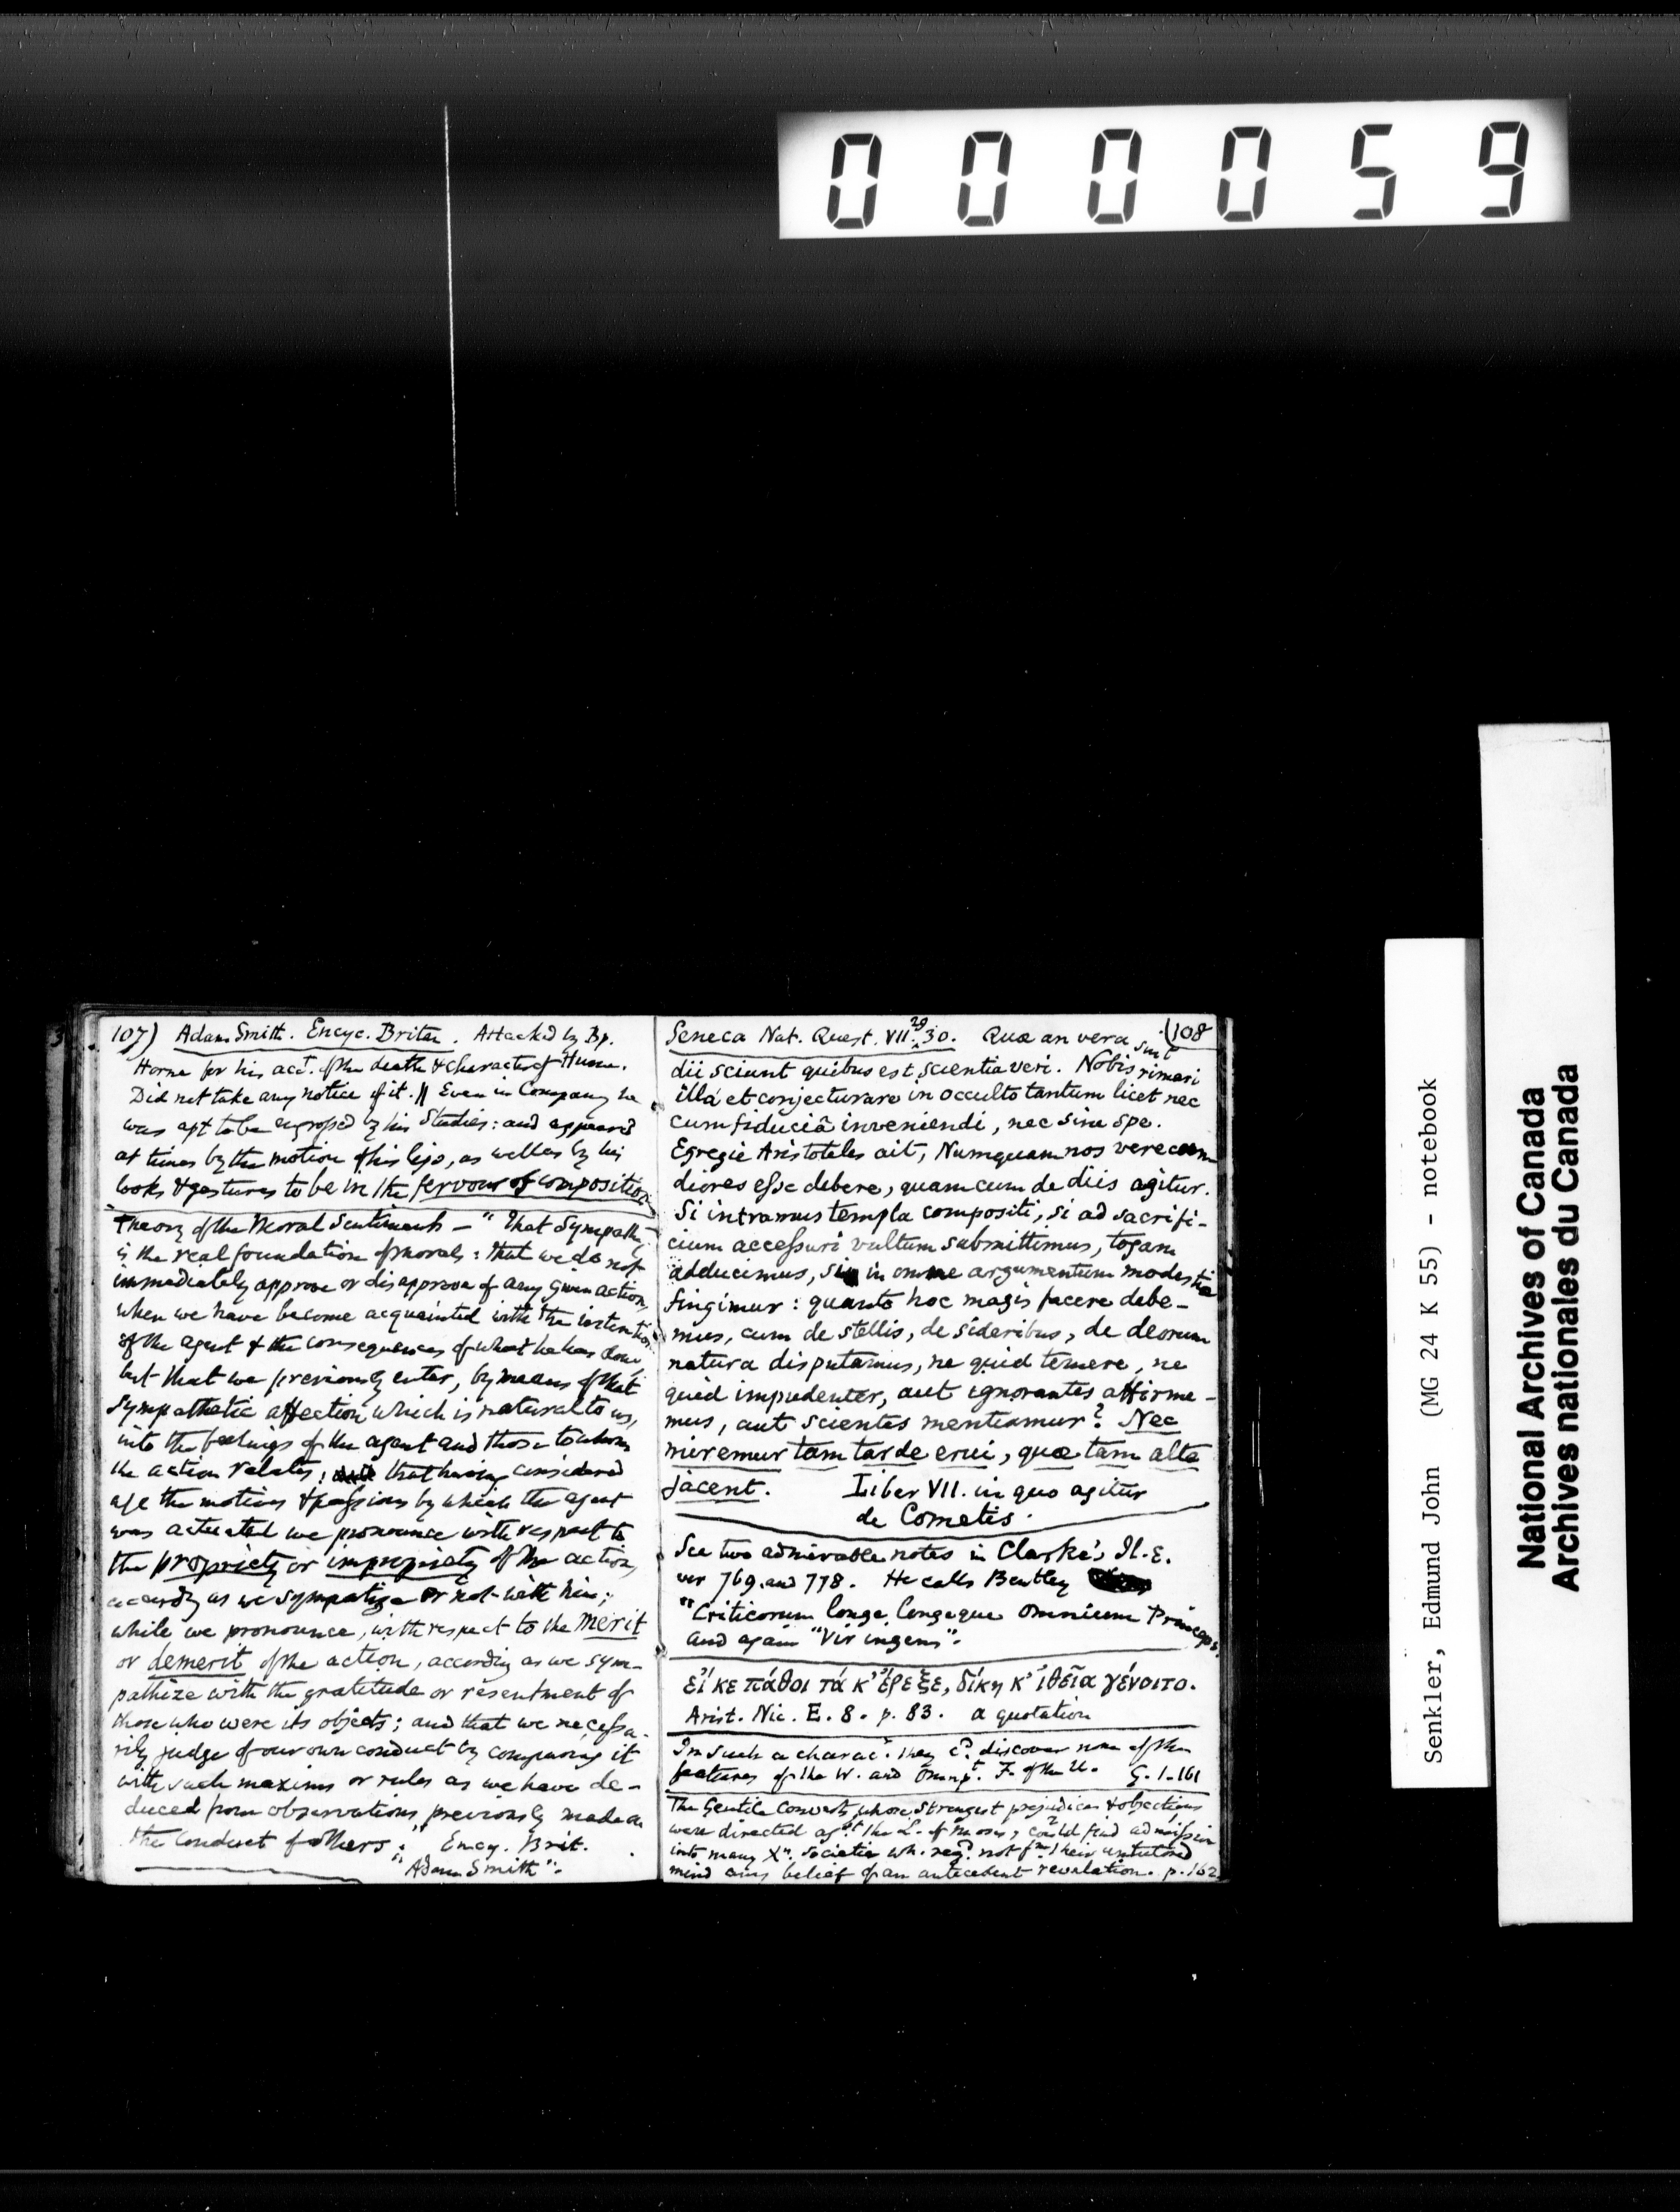 000059
107) Adam Smith. Encyc. Britan. Attacked by Bp.
Horne for his acct. of the death & character of Hume.
Did not take any notice of it. || Even in Company he
was apt to be engrossed by his Studies: and appeared
at times by the motion of his lips, as well as by his
looks & gestures to be in the fervour of composition
Theory of the Moral Sentiments — "That Sympathy
is the real foundation of morals: that we do not
immediately approve or disapprove of any given action,
when we have become acquainted with the intention
of the agent & the consequences of what he has done,
but that we previously enter, by means of that
Sympathetic affection which is natural to us,
into the feelings of the agent and those to whom
the action relates; that having considered
all the motives & passions by which the agent
was actuated we pronounce with respect to
the propriety or impropriety of the action,
accordg as we sympatize or not with him;
while we pronounce, with respect to the merit
or demerit of the action, according as we sym-
pathize with the gratitude or resentment of
those who were its objects; and that we necessa-
rily judge of our own conduct by comparing it
with such maxims or rules as we have de-
duced from observations previously made on
the conduct of others." Ency. Brit.
"Adam Smith".
Seneca Nat. Quest. VII. 29 30. Quæ an vera sint (108
dii sciunt quibus est scientia veri. Nobis rimari
illa et conjecturare in occulto tantum licet nec
cum fiduciâ inveniendi, nec sine spe.
Egregie Aristoteles ait, Numquam nos verecun
diores esse debere, quam cum de diis agitur.
Si intramus templa compositi, si ad sacrifi-
cium accessuri vultum submittimus, togam
adducimus, si in omne argumentum modestiæ
fingimur: quanto hoc magis facere debe-
mus, cum de stellis, de sideribus, de deorum
natura disputamus, ne quid temere, ne
quid impudenter, aut ignorantes affirme-
mus, aut scientes mentiamur? Nec
miremur tam tarde erui, quæ tam alte
jacent. Liber VII. in quo agitur
de Cometis.
See two admirable notes in Clarke's Il. E.
ver 769. and 778. He calls Bentley
"Criticorum longe longeque omnium Princeps"
and again "Vir ingens".
εἴ κε πάθοι τά κ' ἔρεξε, δίκη κ' ἰθεῖα γένοιτο.
Arist. Nic. E. 8. p. 83. a quotation
In such a charac.r they c.d discover none of the
features of the W. and Omnip.t F. of the U. G. 1-161
The Gentile Converts, whose strongest prejudices & objections
were directed ag.st the L. of Moses, could find admission
into many X.n Societies wh. req.d not f.m their untutored
mind any belief of an antecedent revelation. p. 162
Senkler, Edmund John (MG 24 K 55) - notebook
National Archives of Canada
Archives nationales du Canada